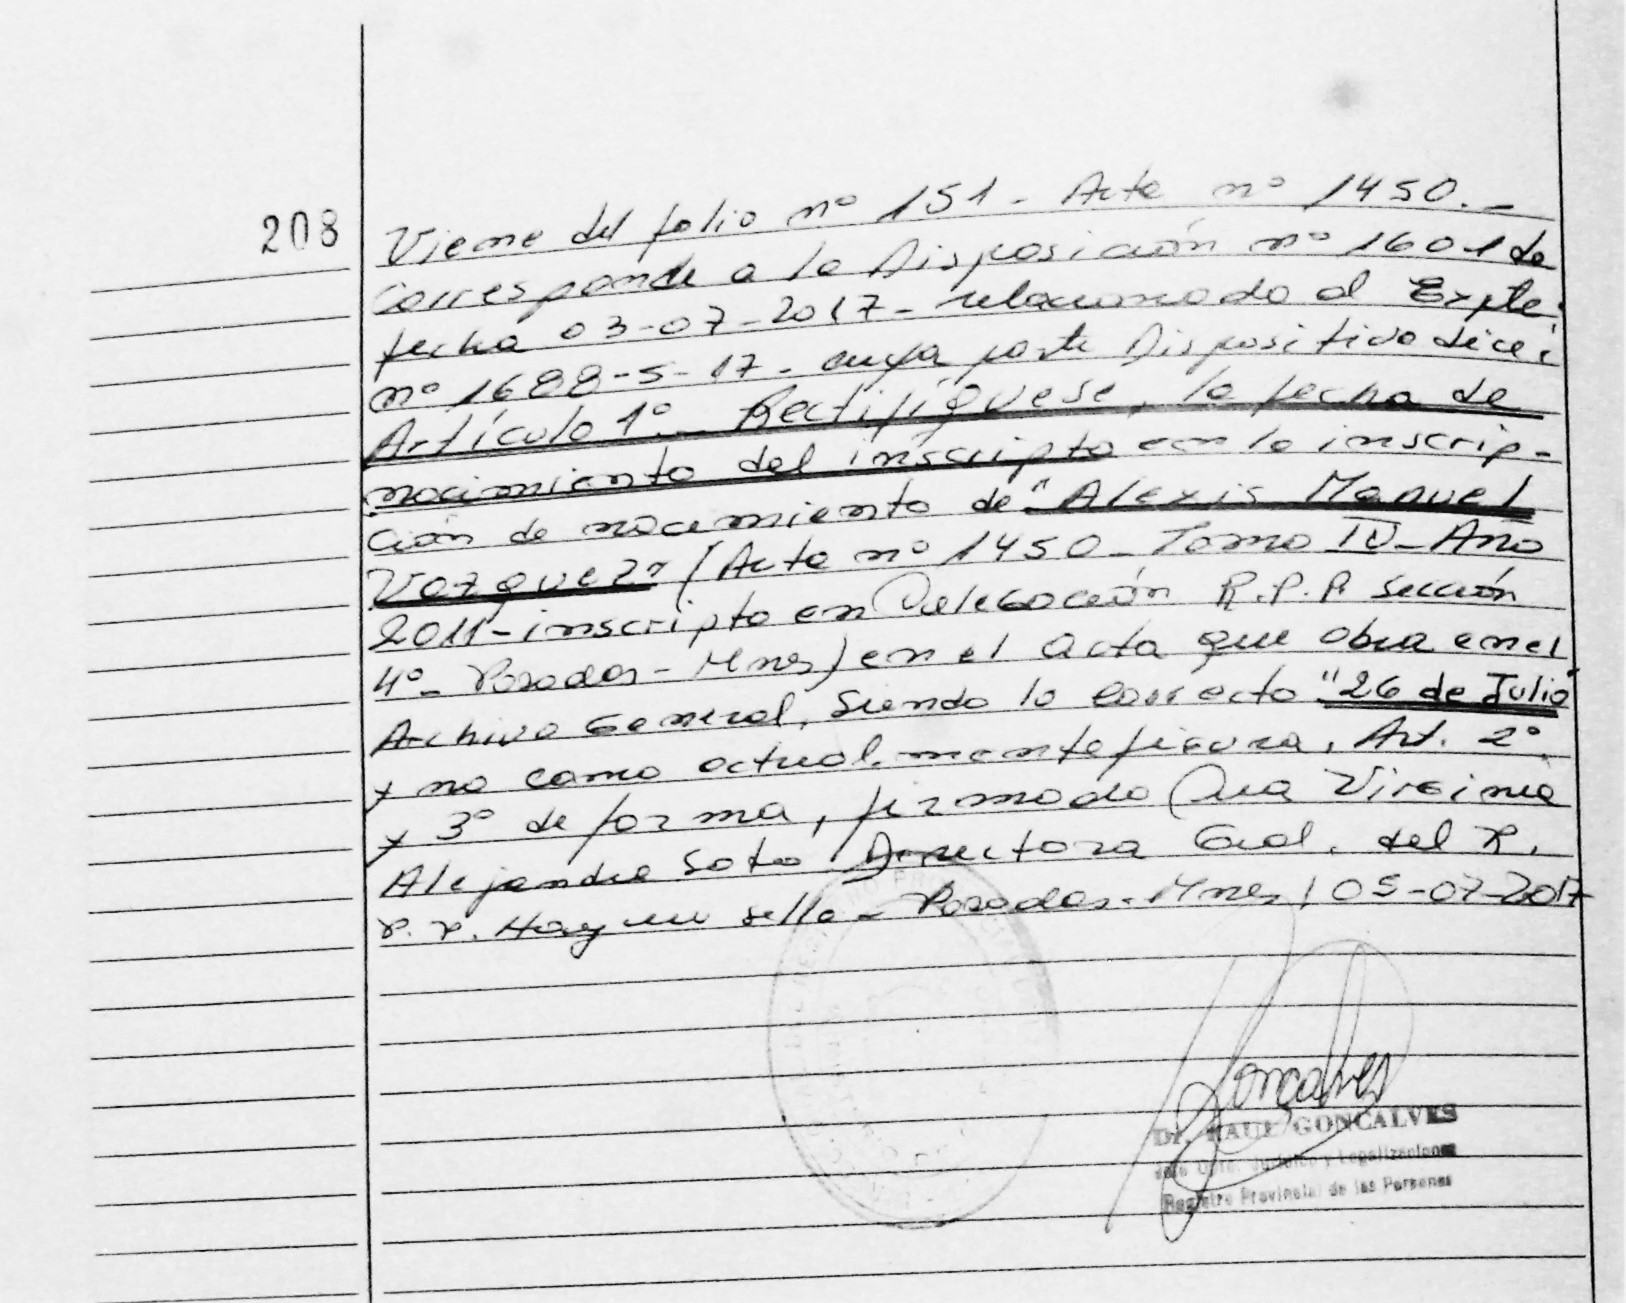 208
Viene del folio nº 151 - Acta nº 1450.-
Corresponde a la Disposición nº 1601 de
fecha 03-07-2017- relacionado al Expte.
nº 1688-S-17- cuya parte Dispositiva dice:
Artículo 1º.- Rectifíquese, la fecha de
nacimiento del inscripto en la inscrip-
ción de nacimiento de "Alexis Manuel
Vazquez" (Acta nº 1450- Tomo IV- Año
2011- inscripta en Delegación R.P.P. sección
4º- Posadas- Mnes) en el acta que obra en el
Archivo General, Siendo lo correcto "26 de Julio"
y no como actualmente figura, Art. 2º
y 3º de forma, firmado Dra Virginia
Alejandra Soto Directora Gral. del R.
P. P. Hay un sello - Posadas- Mnes, 05-07-2017
Goncalves
Dr. RAUL GONCALVES
Jefe Dpto. Jurídico y Legalizaciones
Registro Provincial de las Personas